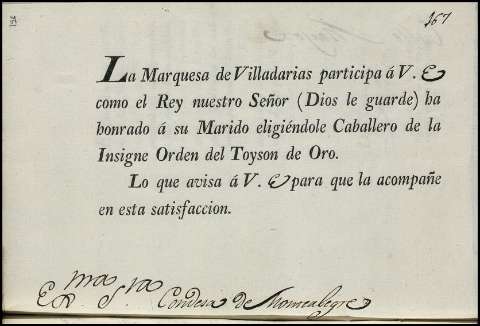 167
La Marquesa de Villadarias participa á V. E
como el Rey nuestro Señor (Dios le guarde) ha
honrado á su Marido eligiéndole Caballero de la
Insigne Orden del Toyson de Oro.
Lo que avisa á V. E para que la acompañe
en esta satisfaccion.
Exma Sra Condesa de Montealegre